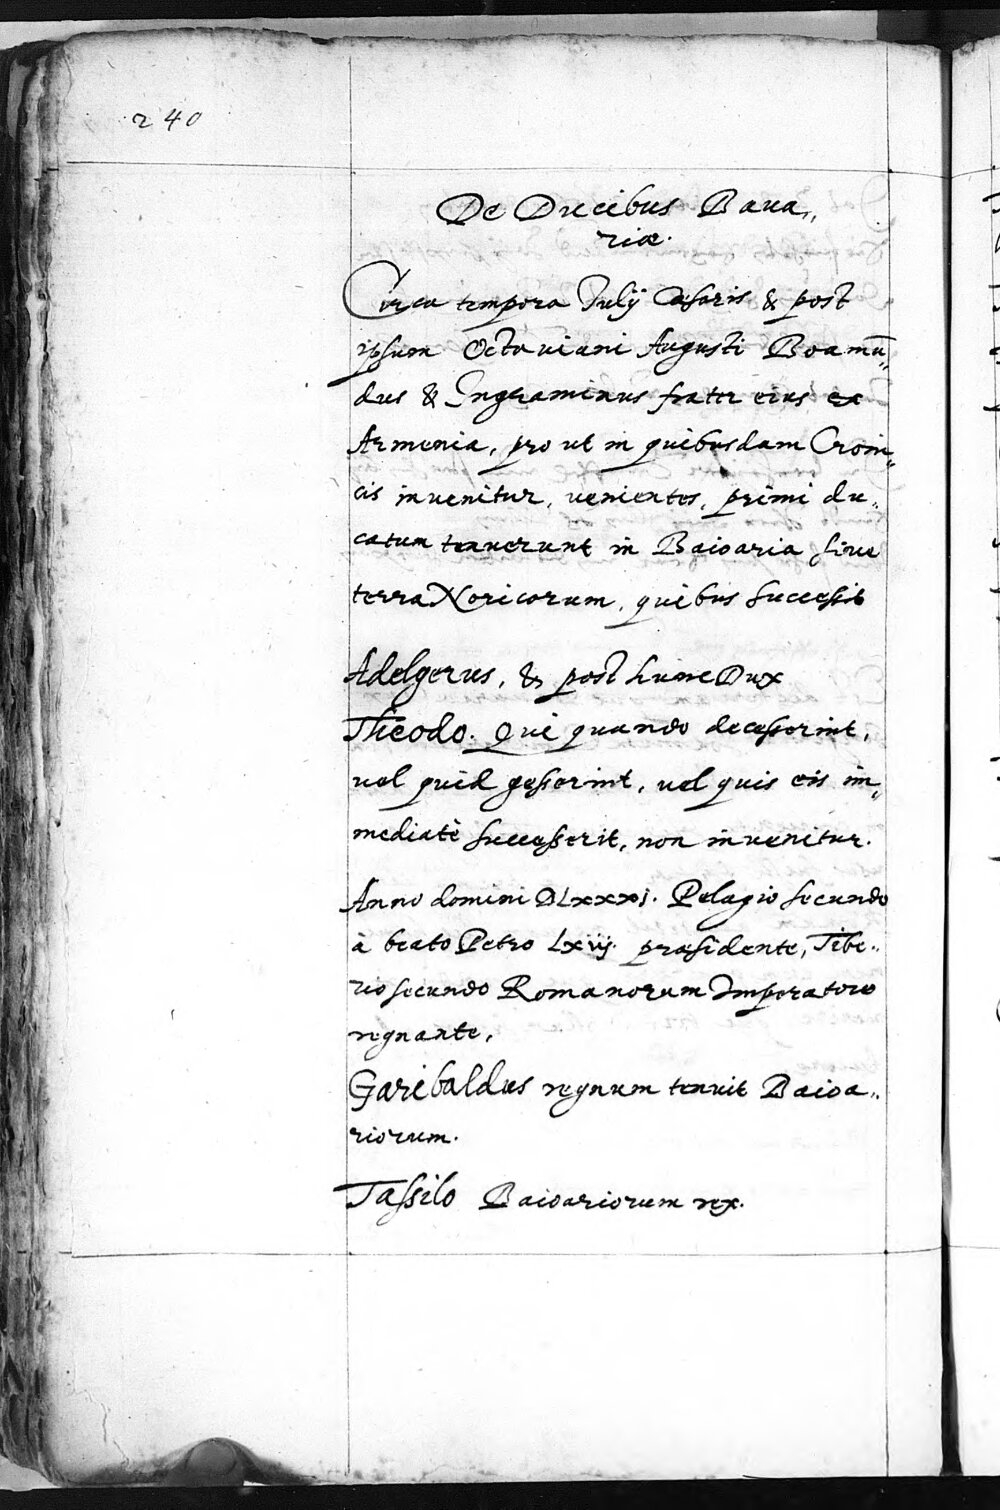 240
De Ducibus Baua„
riæ.
Circa tempora Julij Cæsaris & post
ipsum Octauiani Augusti Boamū„
dus & Ingraminus frater eius ex
Armenia, pro ut in quibusdam Croni„
cis inuenitur, venientes, primi du„
catum tenuerunt in Baioaria siue
terra Noricorum, quibus successit
Adelgerus, & post hunc Dux
Theodo. Qui quando decesserint,
uel quid gesserint, uel quis eis im„
mediatè successerit, non inuenitur.
Anno domini DLxxxj. Pelagio secundo
à beato Petro Lxiij. præsidente, Tibe„
rio secundo Romanorum Imperatore
regnante,
Garibaldus regnum tenuit Baioa„
riorum.
Tassilo Baioariorum rex.